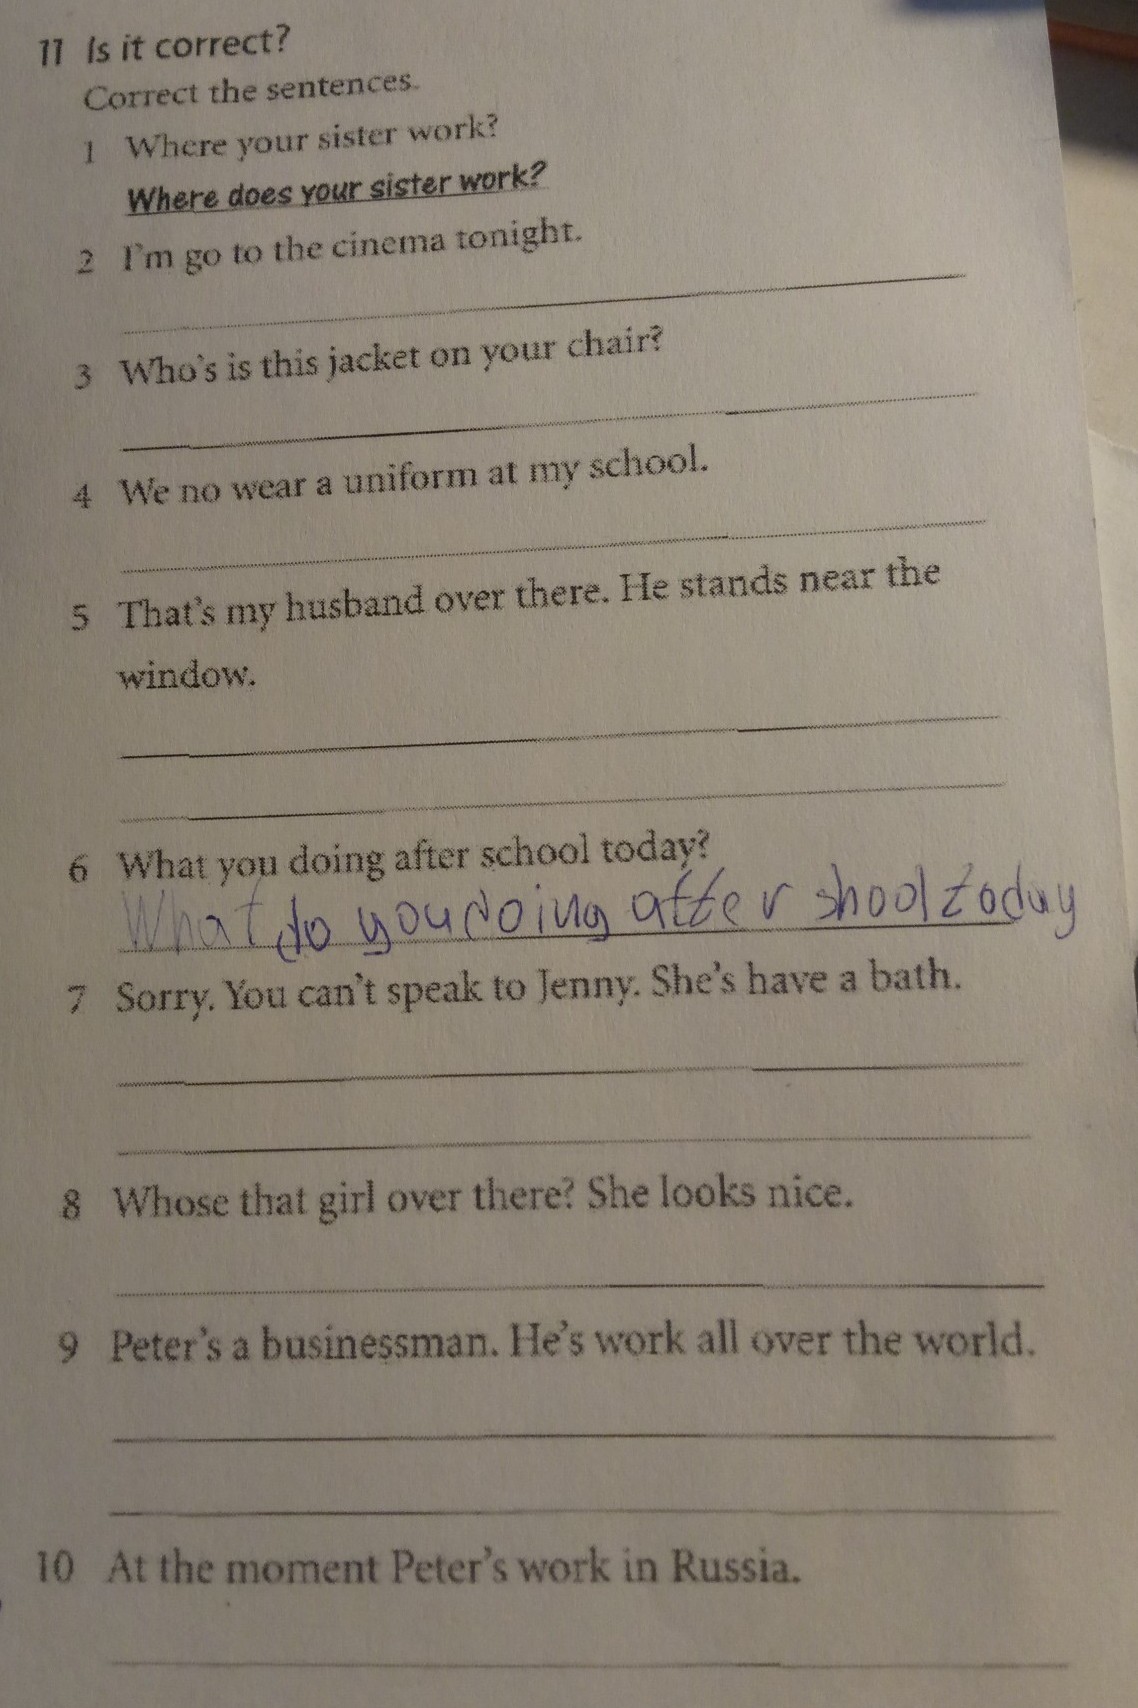 11 Is it correct?
Correct the sentences.
1 Where your sister work?
Where does your sister work?
2 I'm go to the cinema tonight.
3 Who's is this jacket on your chair?
4 We no wear a uniform at my school.
5 That's my husband over there. He stands near the
window.
6 What you doing after school today?
What do you doing after shool today
7 Sorry. You can't speak to Jenny. She's have a bath.
8 Whose that girl over there? She looks nice.
9 Peter's a businessman. He's work all over the world.
10 At the moment Peter's work in Russia.